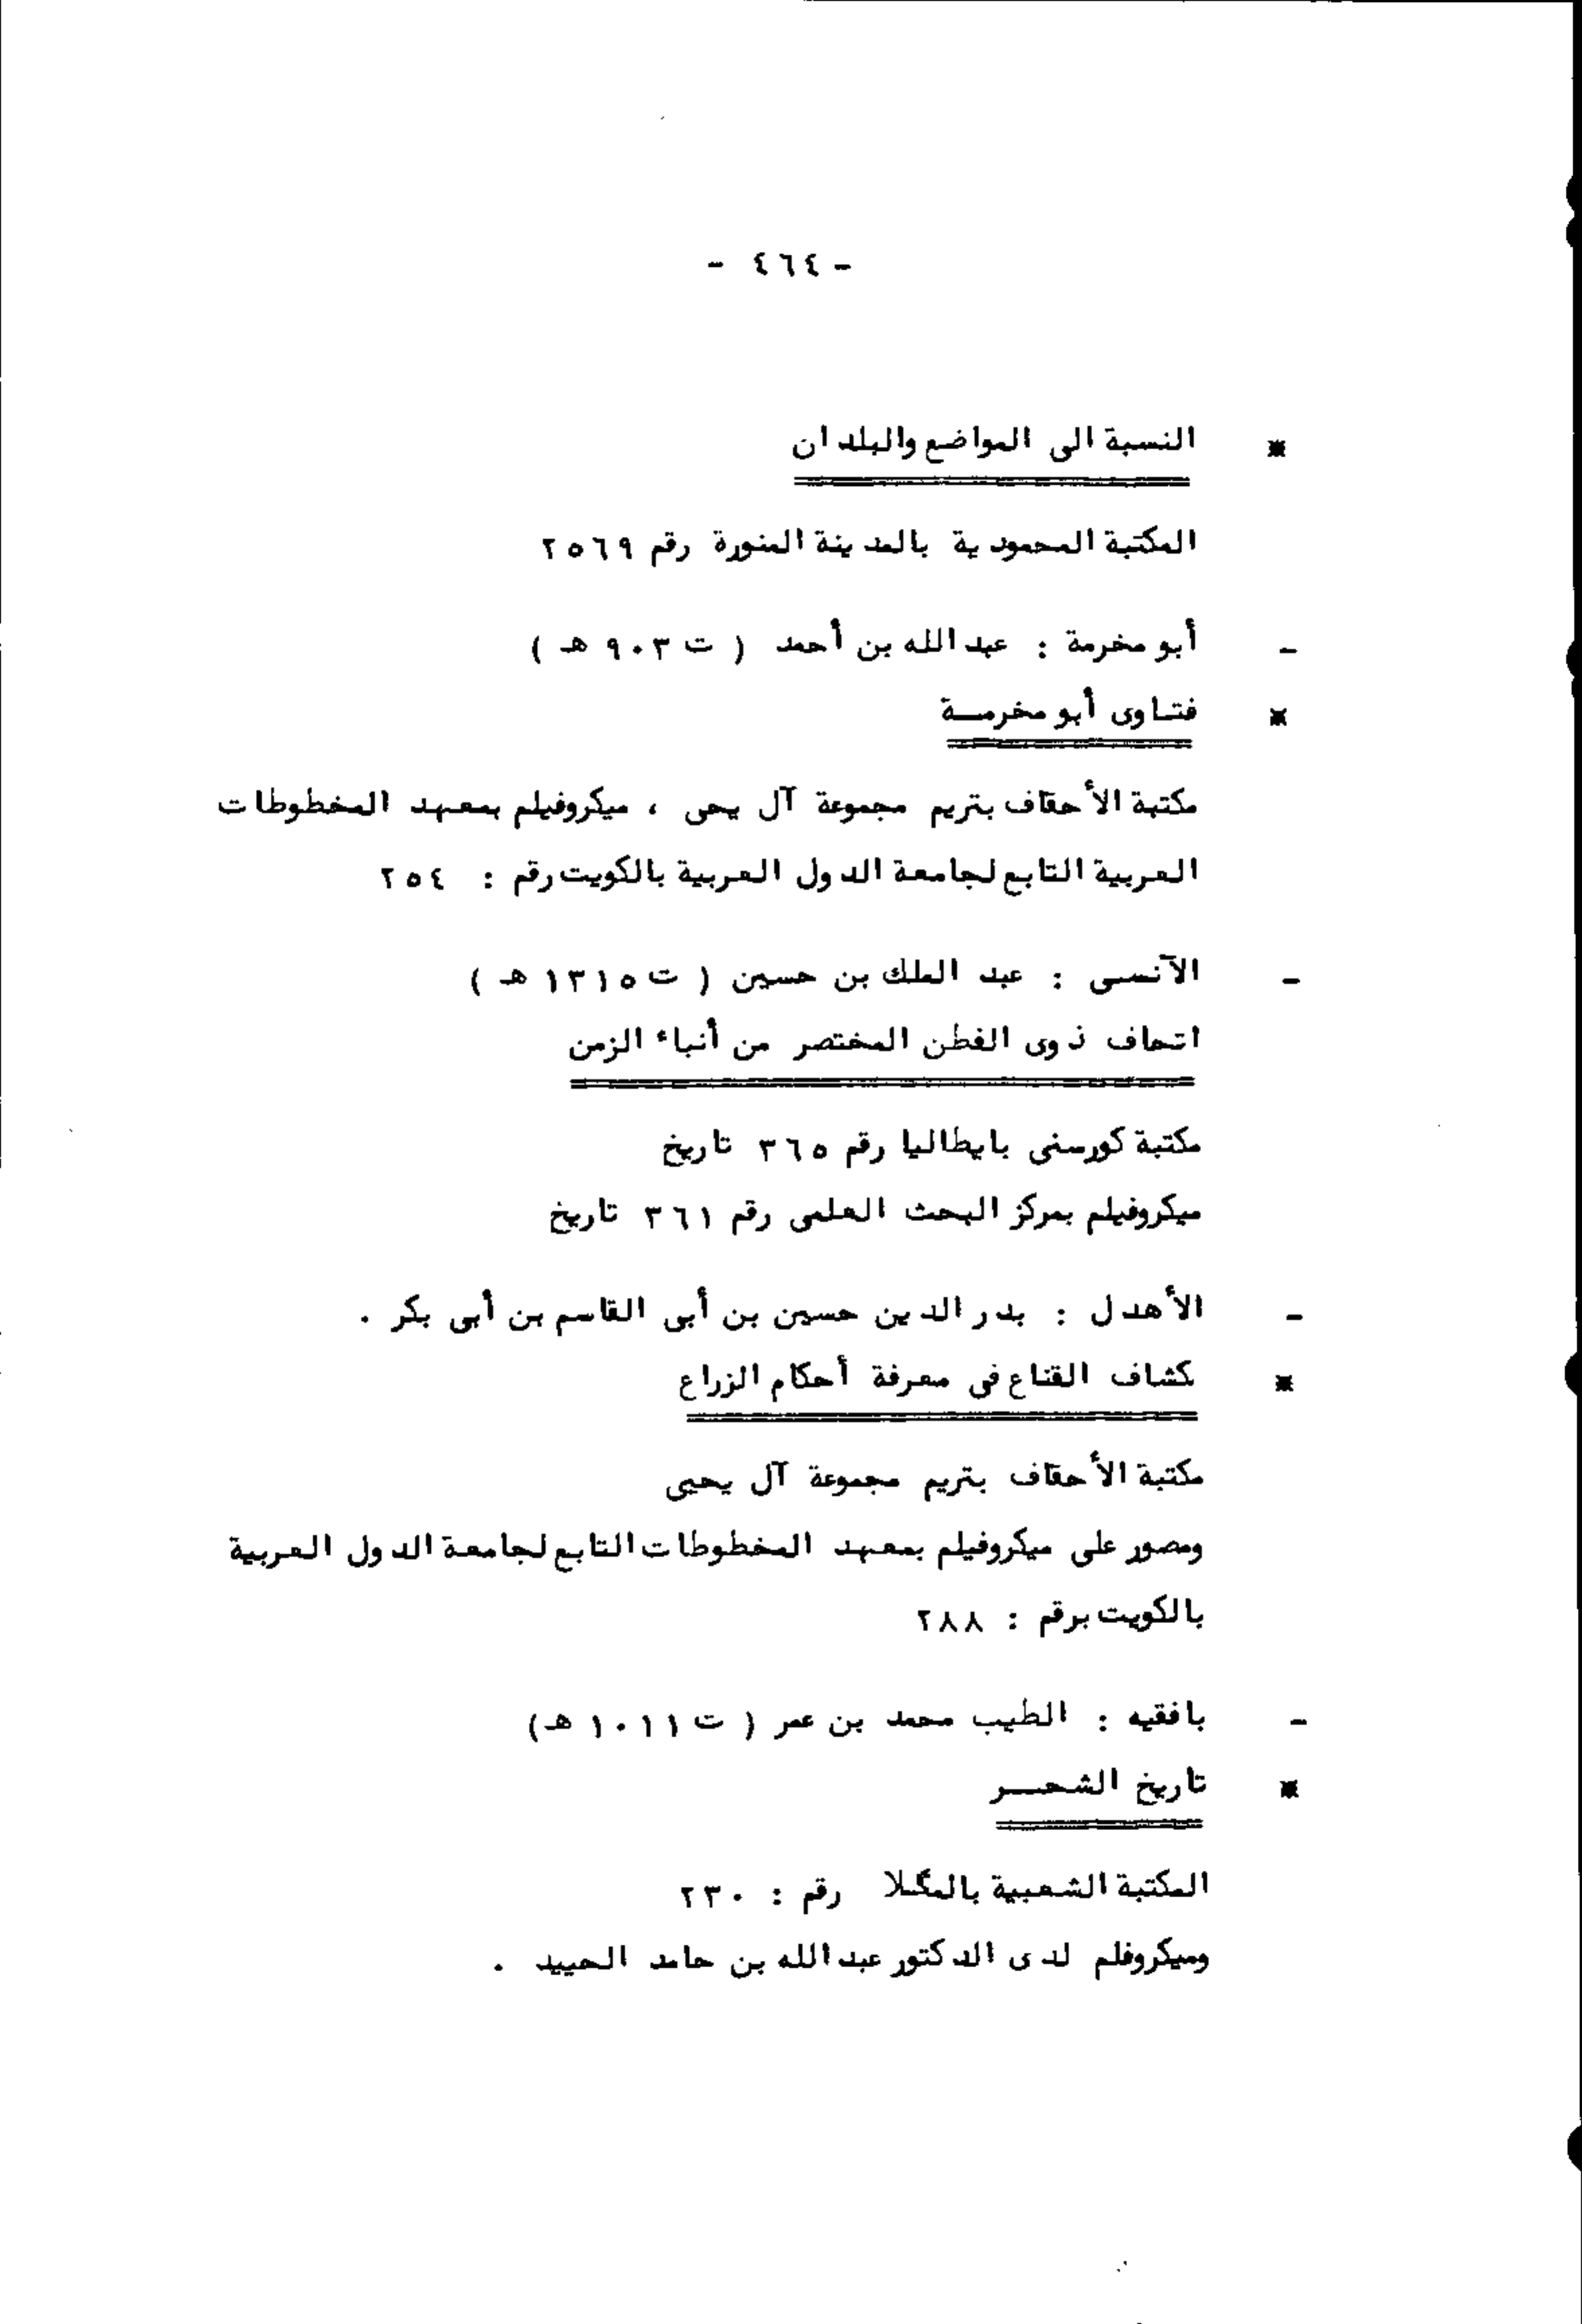 - ٤٦٤ -
* النسبة الى المواضع والبلدان
المكتبة المحمودية بالمدينة المنورة رقم ٢٥٦٩
- أبو مخرمة : عبد الله بن أحمد ( ت ٩٠٣ هـ )
* فتاوى أبو مخرمـــة
مكتبة الأحقاف بتريم مجموعة آل يحى ، ميكروفيلم بمعهد المخطوطات
العربية التابع لجامعة الدول العربية بالكويت رقم : ٢٥٤
- الآنسى : عبد الملك بن حسين ( ت ١٣١٥ هـ )
اتحاف ذوى الفطن المختصر من أنباء الزمن
مكتبة كورسنى بايطاليا رقم ٣٦٥ تاريخ
ميكروفيلم بمركز البحث العلمى رقم ٣٦١ تاريخ
- الأهدل : بدر الدين حسين بن أبى القاسم بن أبى بكر .
* كشاف القناع فى معرفة أحكام الزراع
مكتبة الأحقاف بتريم مجموعة آل يحيى
ومصور على ميكروفيلم بمعهد المخطوطات التابع لجامعة الدول العربية
بالكويت برقم : ٢٨٨
- بافقيه : الطيب محمد بن عمر ( ت ١٠١١ هـ)
* تاريخ الشحـــر
المكتبة الشعبية بالمكلا رقم : ٢٣٠
وميكروفلم لدى الدكتور عبد الله بن حامد الحييد .